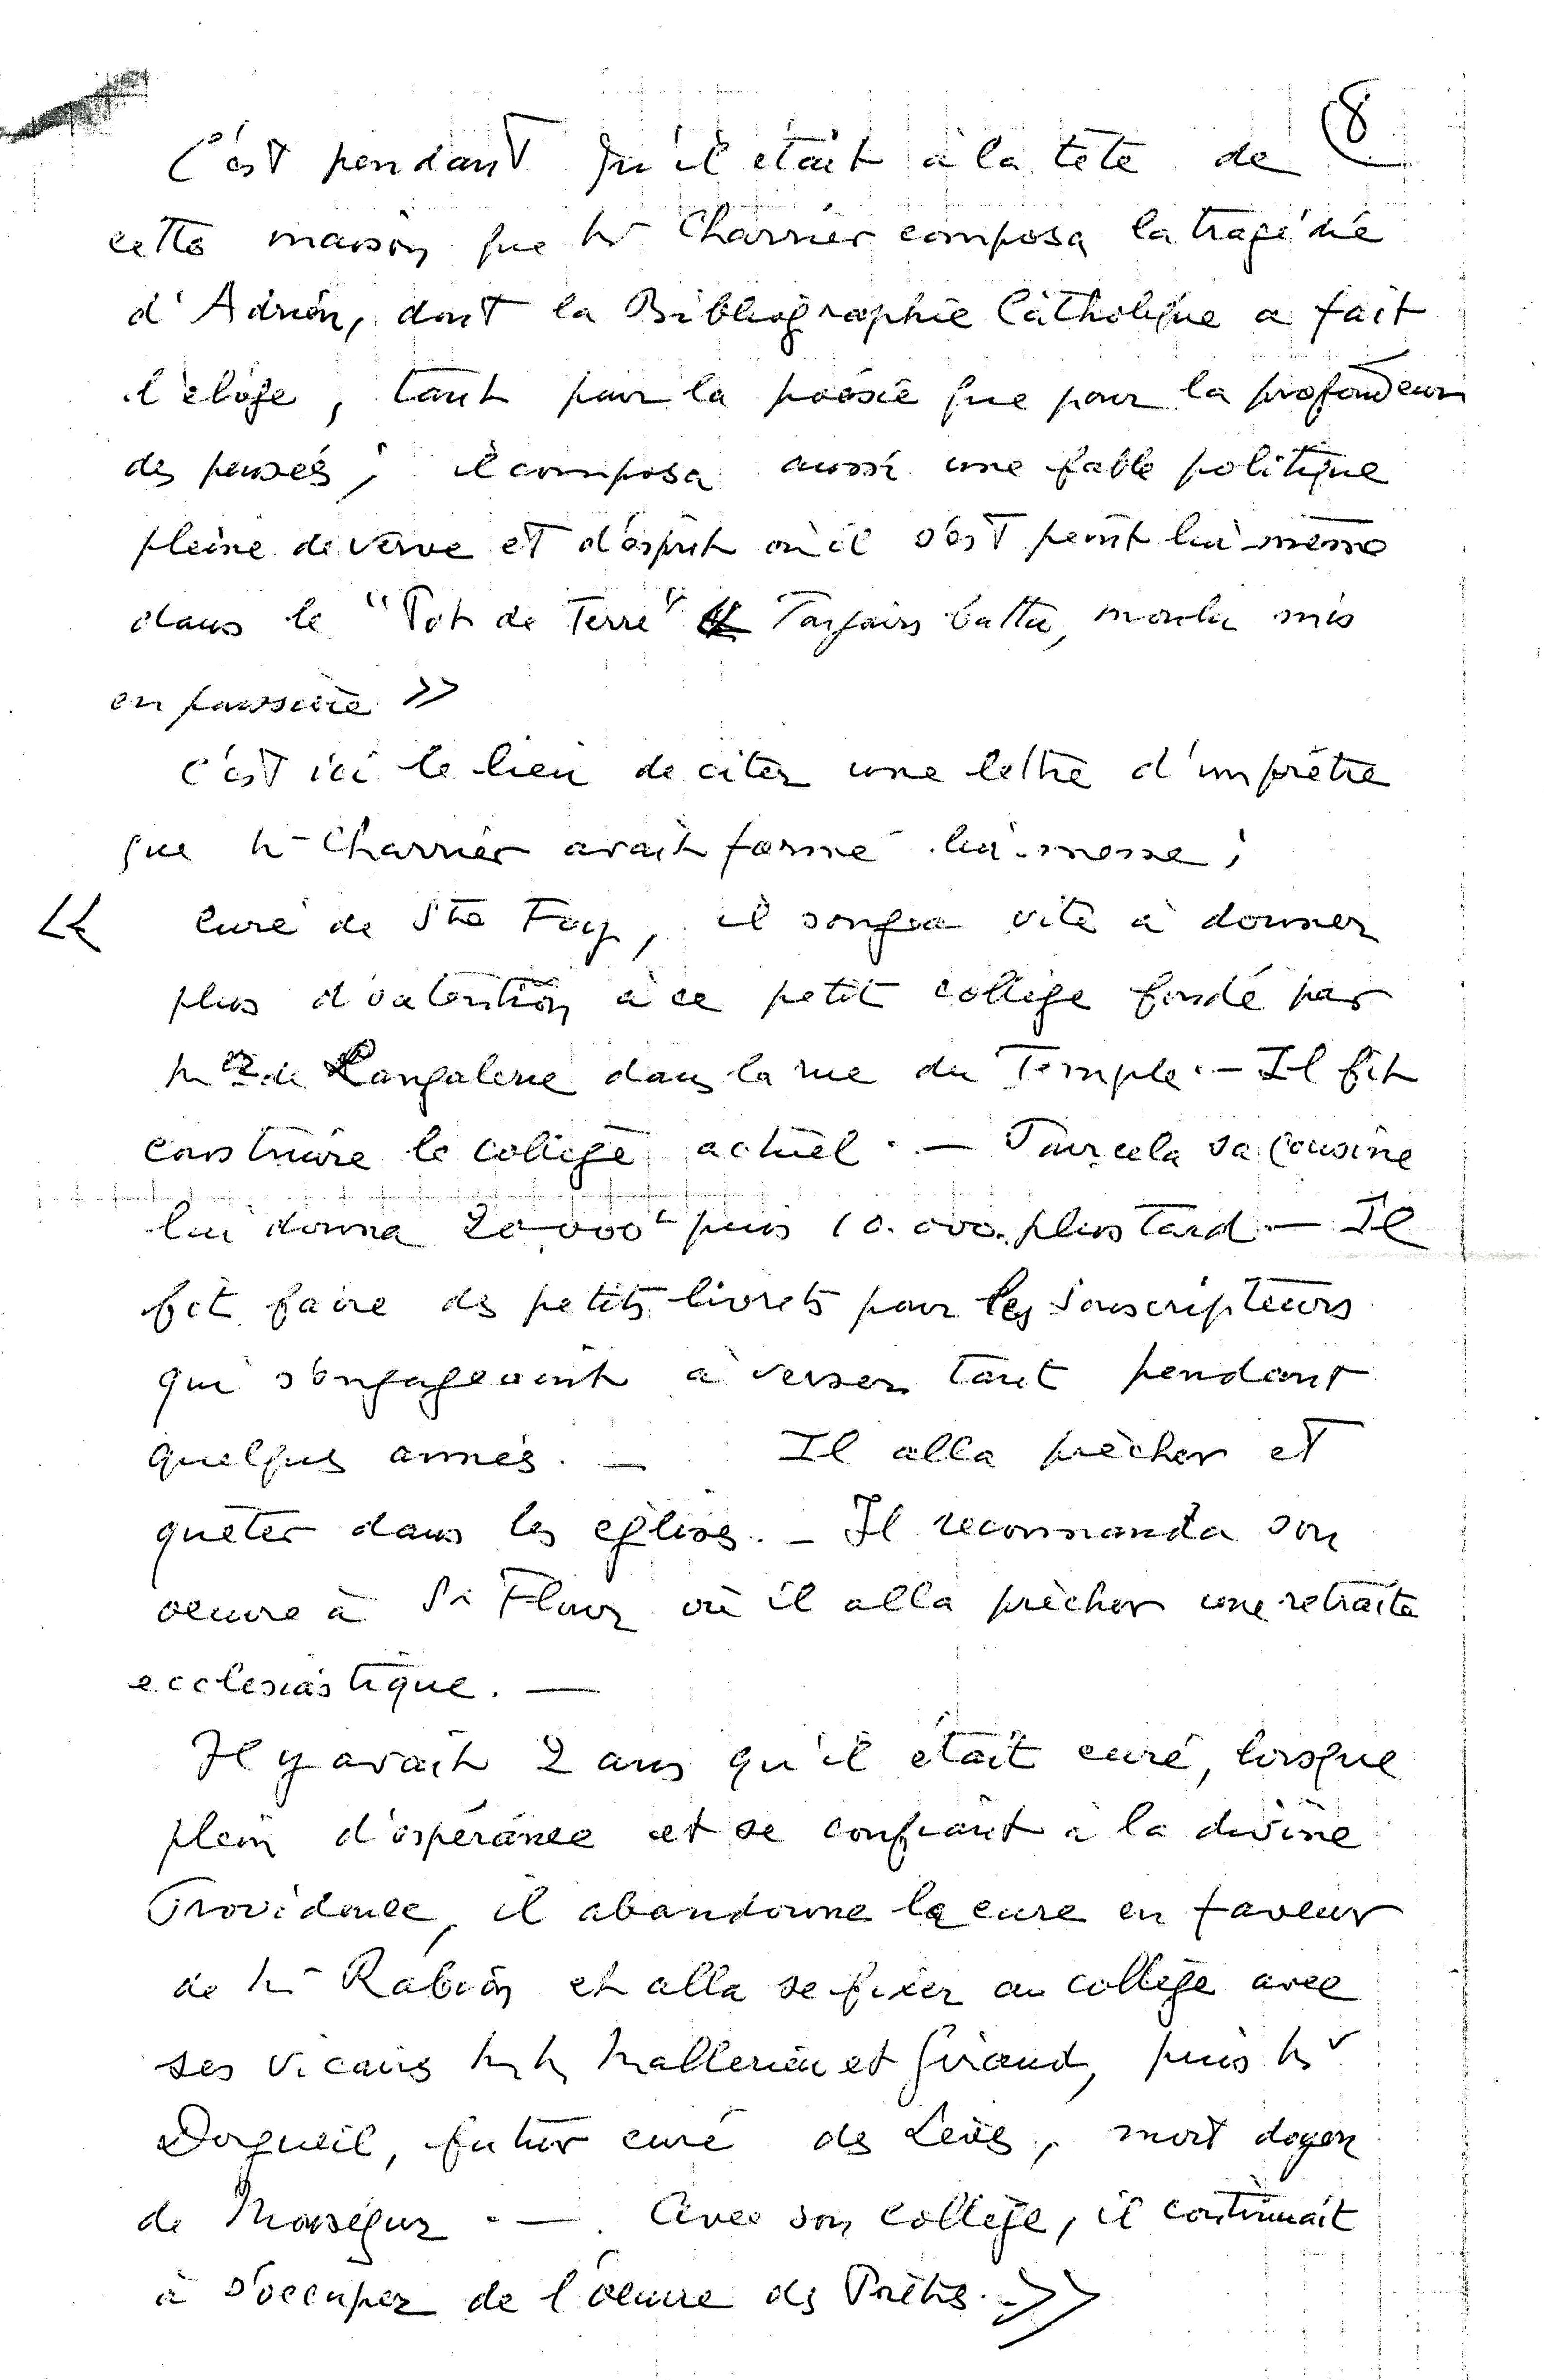 8
C'est pendant qu'il était à la tête de
cette maison que Mr Charrier composa la tragédie
d'Adrien, dont la Bibliographie Catholique a fait
l'éloge, tant pour la poésie que pour la profondeur
des pensées; il composa aussi une fable politique
pleine de verve et d'esprit où il s'est peint lui-même
dans le "Pot de Terre" Toujours battu, moulu mis
en poussière >>
C'est ici le lieu de citer une lettre d'un prêtre
que Mr Charrier avait formé lui-même;
<< Curé de Ste Foy, il songea vite à donner
plus d'extention à ce petit collège fondé par
de Langalerie dans la rue du Temple. — Il fit
construire le collège actuel. — Pour cela sa Cousine
lui donna 20.000 puis 10.000 plus tard. — Il
fit faire des petits livrets pour les Souscripteurs
qui s'engageaient à verser tant pendant
quelques années. — Il alla prêcher et
quêter dans les églises. — Il recommanda son
oeuvre à St Flour où il alla prêcher une retraite
ecclésiastique. —
Il y avait 2 ans qu'il était curé, lorsque
plein d'espérance et se confiant à la divine
Providence, il abandonne la cure en faveur
de Mr Rabion et alla se fixer au collège avec
ses vicaires MM Mallerieu et Giraud, puis Mr
Dorgueil, futur curé des Lèves, mort doyen
de Monségur. — Avec son collège, il continuait
à s'occuper de l'oeuvre des Prêtres. >>